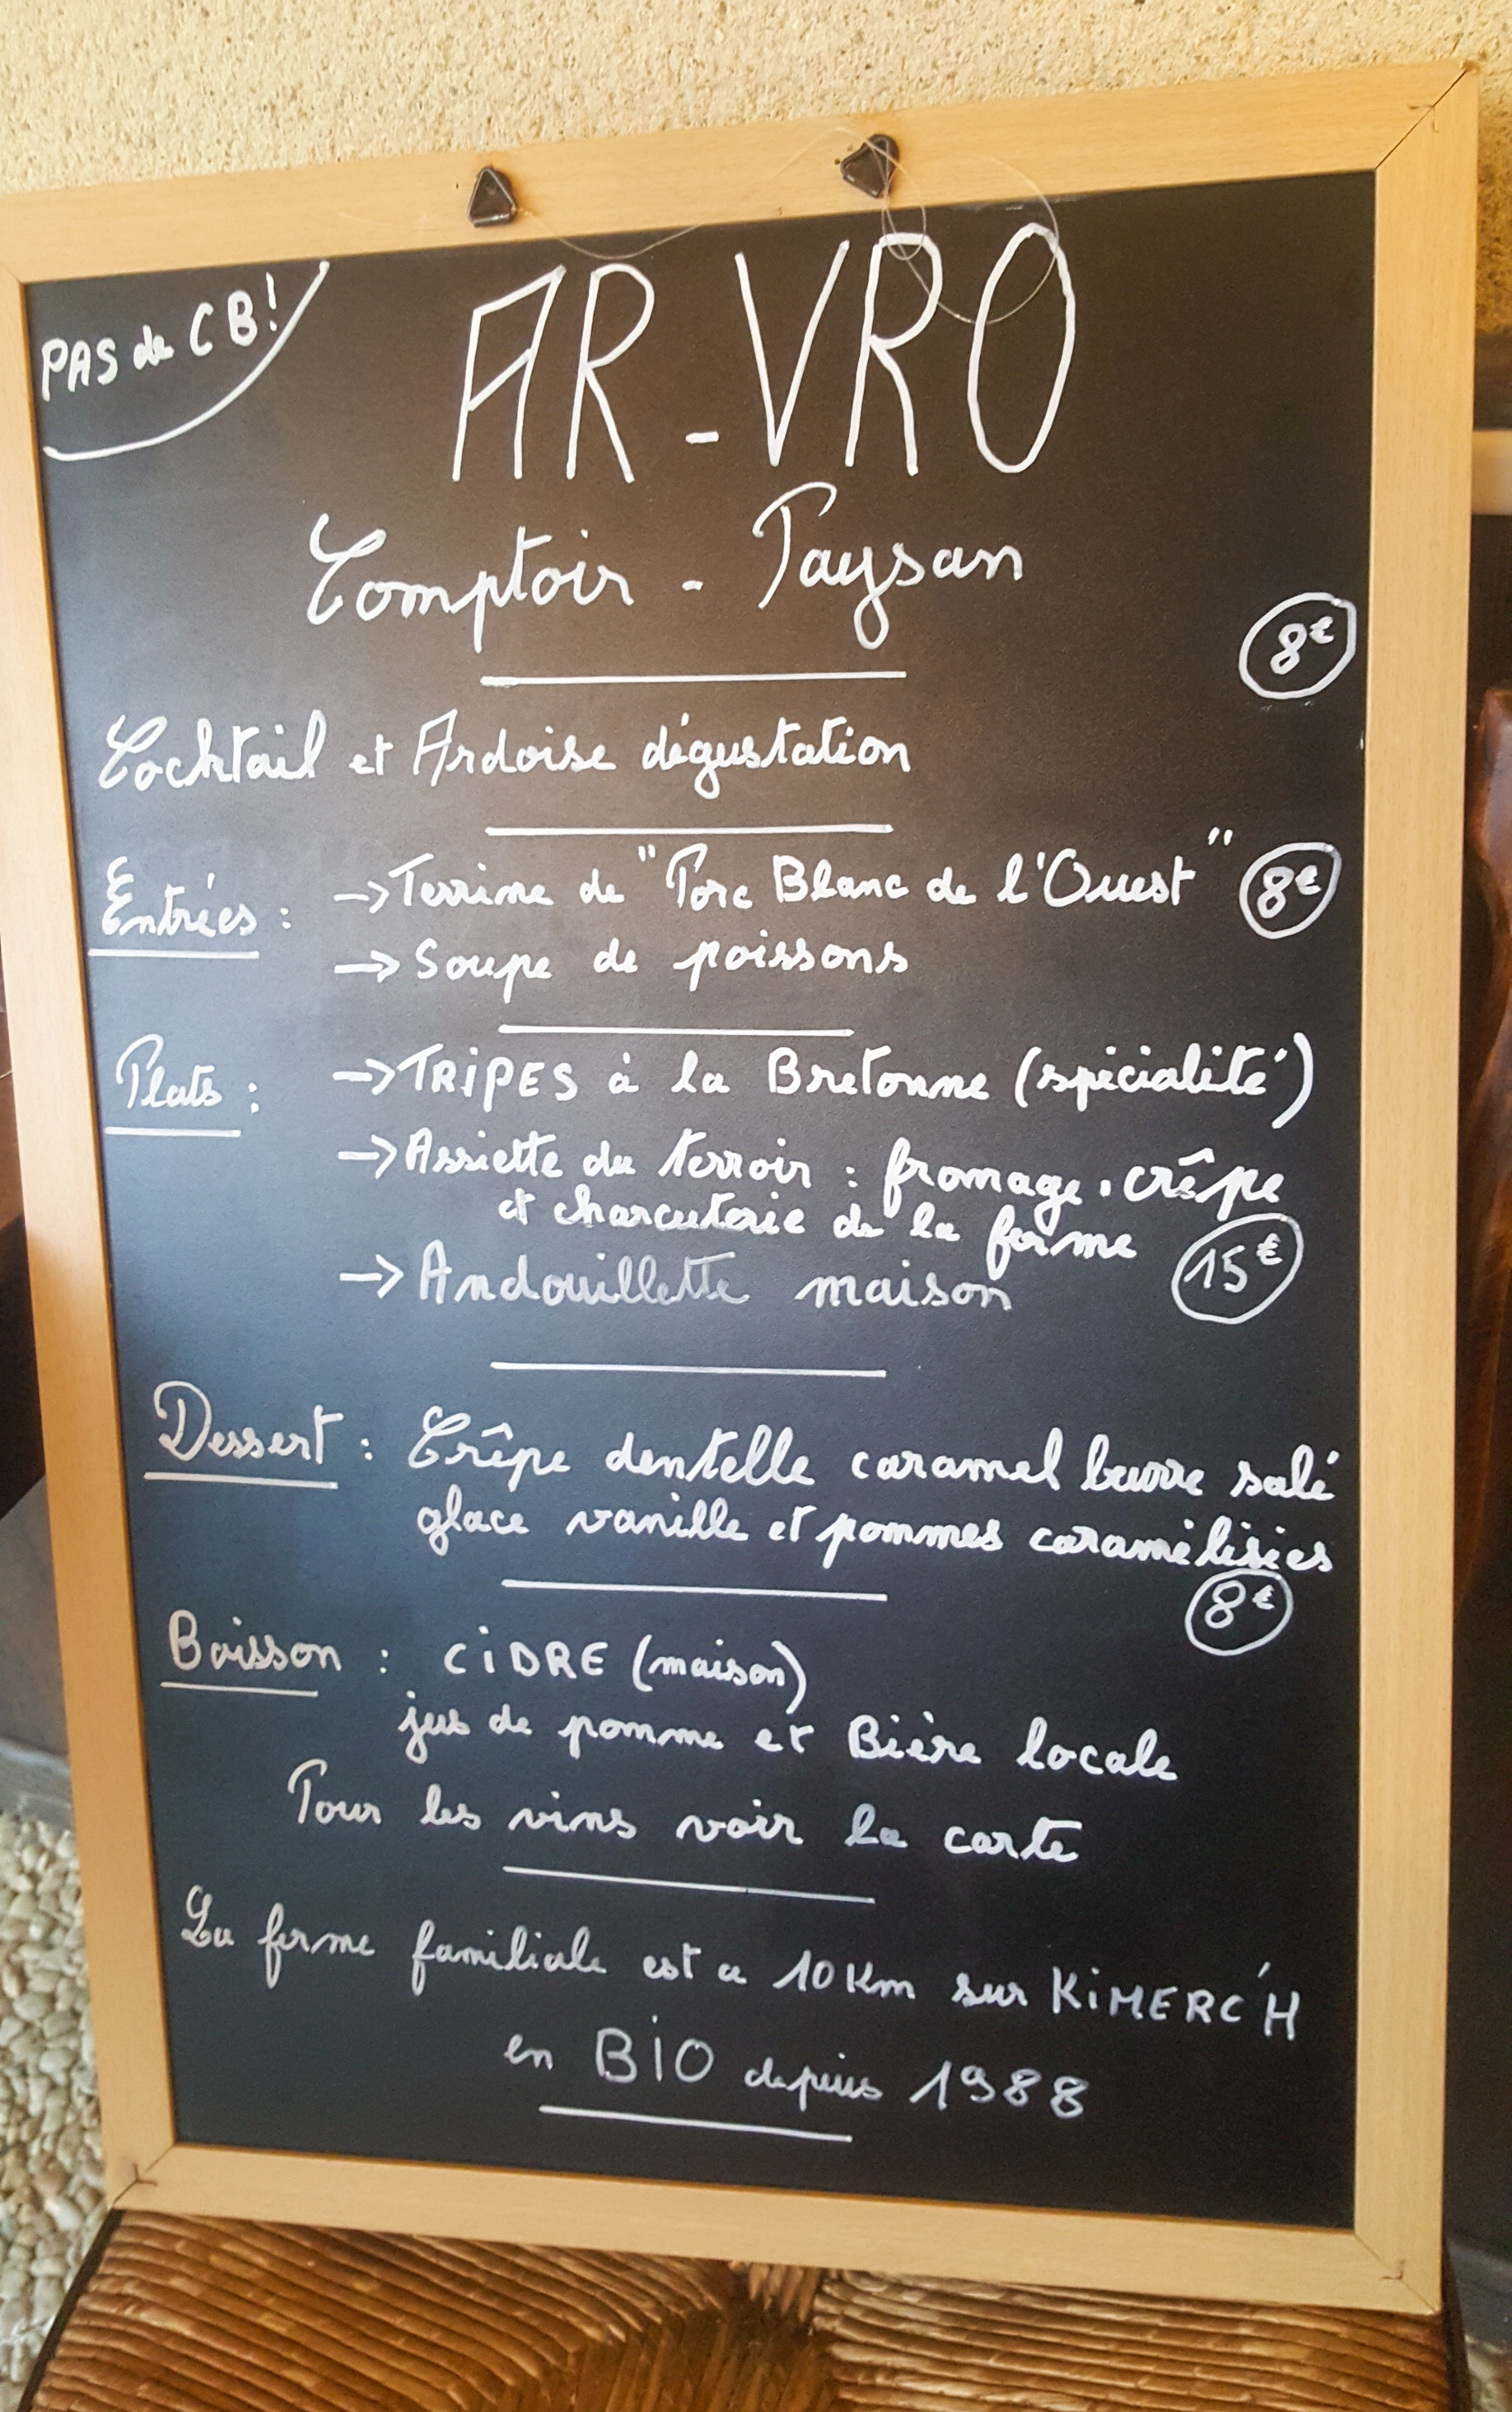 PAS de CB!
AR-VRO
Comptoir - Paysan
8€
Cocktail et Ardoise dégustation
Entrées : → Terrine de "Porc Blanc de l'Ouest" 8€
→ Soupe de poissons
Plats : → TRIPES à la Bretonne (spécialité)
→ Assiette du terroir : fromage, crêpe
et charcuterie de la ferme
→ Andouillette maison 15€
Dessert : Crêpe dentelle caramel beurre salé
glace vanille et pommes caramélisées
8€
Boisson : CiDRE (maison)
jus de pomme et Bière locale
Pour les vins voir la carte
La ferme familiale est a 10 Km sur KiMERC'H
en BiO depuis 1988